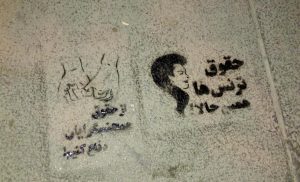 حقوق
ترنس ها
همین حالا!
از حقوق
همجنسگرایان
دفاع کنیم